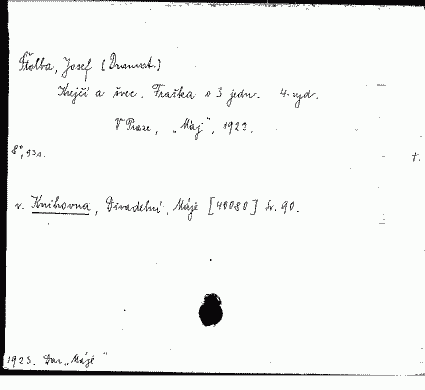 Štolba, Josef (Dramat.)
Krejčí a švec. Fraška o 3 jedn. 4. vyd.
V Praze, „Máj", 1922.
8°, 93 s. t.
v. Knihovna, Divadelní, Máje [40080] sv. 90.
1923. Dar „Máje"